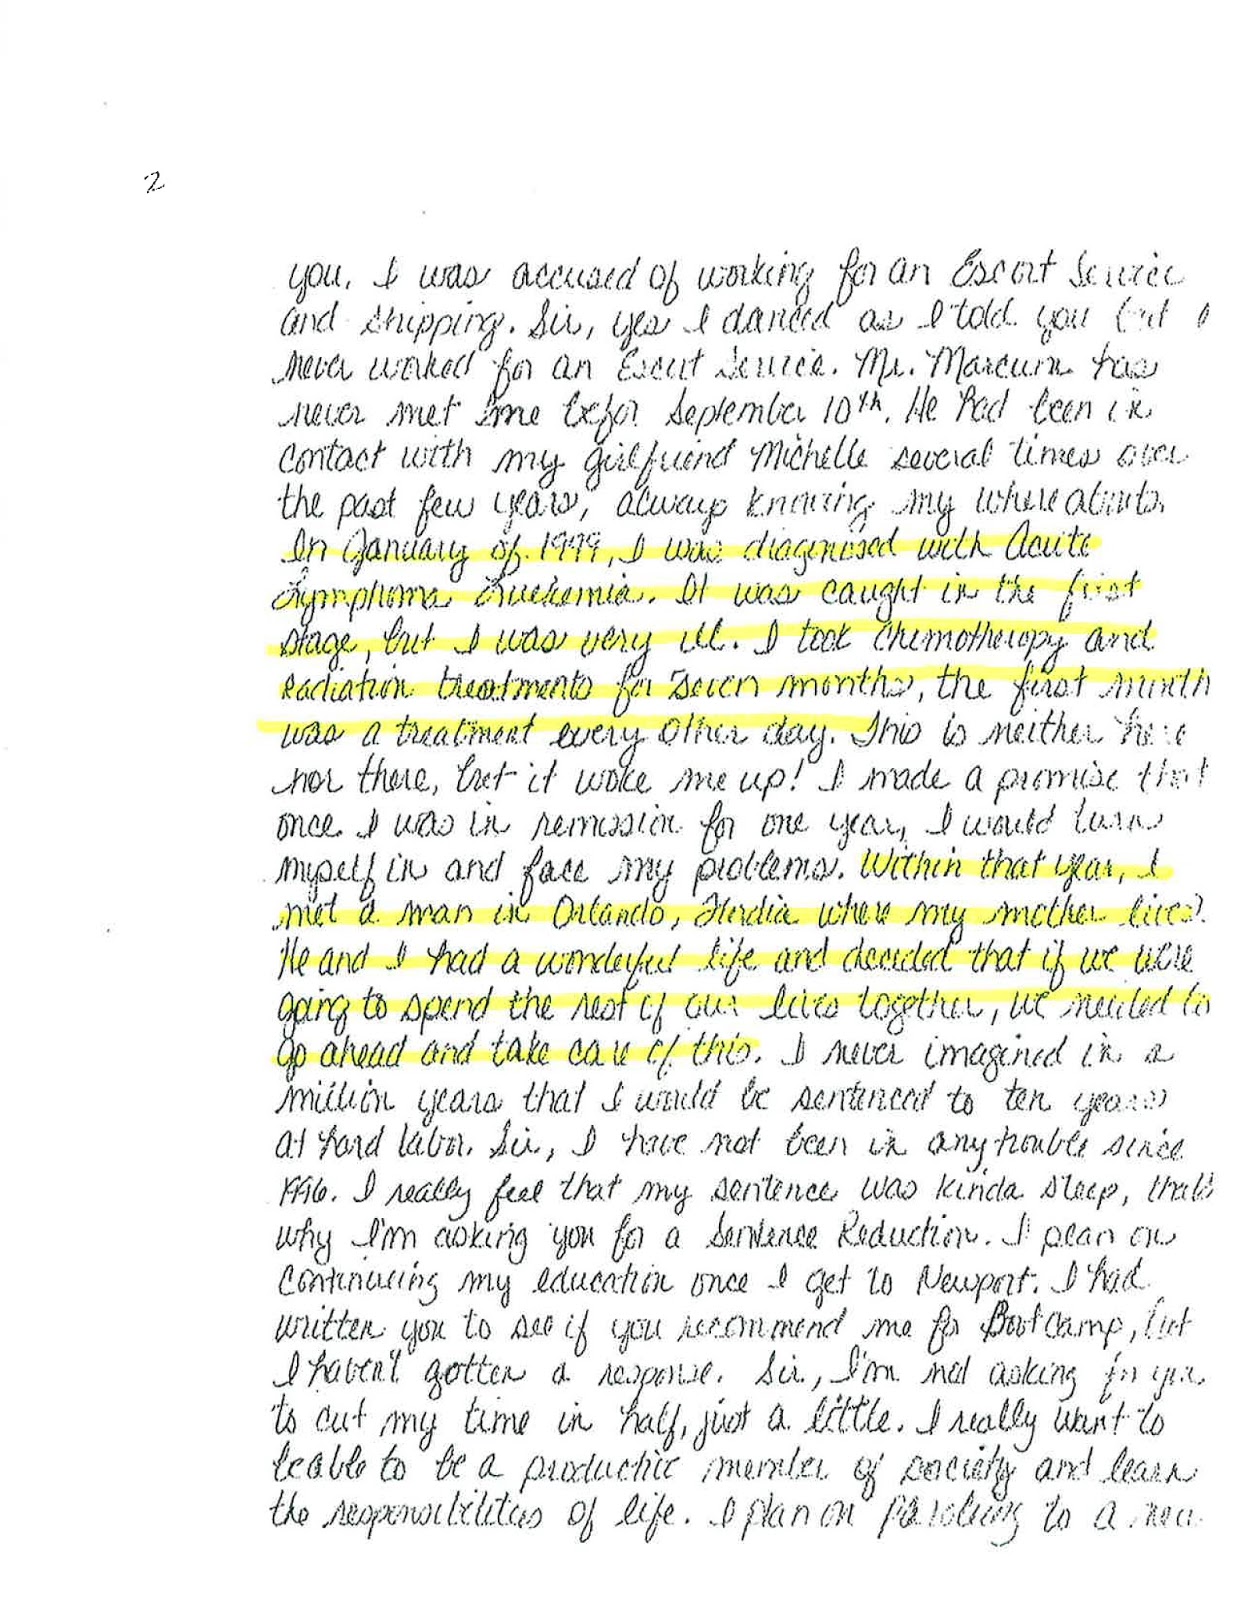 2
you. I was accused of working for an Escort Service
and stripping. Sir, yes I danced as I told you but I
never worked for an Escort Service. Mr. Marcum has
never met me befor September 10th. He had been in
contact with my girlfriend Michelle several times over
the past few years, always knowing my where abouts.
In January of 1999, I was diagnosed with Acute
Lymphoma Luekemia. It was caught in the first
stage, but I was very ill. I took Chemotherapy and
Radiation treatments for Seven months, the first month
was a treatment every other day. This is neither here
nor there, but it woke me up! I made a promise that
once I was in remission for one year, I would turn
myself in and face my problems. Within that year, I
met a man in Orlando, Flordia where my mother lives.
He and I had a wonderful life and decided that if we were
going to spend the rest of our lives together, we needed to
go ahead and take care of this. I never imagined in a
million years that I would be sentenced to ten years
at hard labor. Sir, I have not been in any trouble since
1996. I really feel that my sentence was kinda steep, that's
why I'm asking you for a Sentence Reduction. I plan on
continuing my education once I get to Newport. I had
written you to see if you recommend me for Boot Camp, but
I haven't gotten a response. Sir, I'm not asking for you
to cut my time in half, just a little. I really want to
be able to be a productive member of society and learn
the responsibilities of life. I plan on paroling to a new